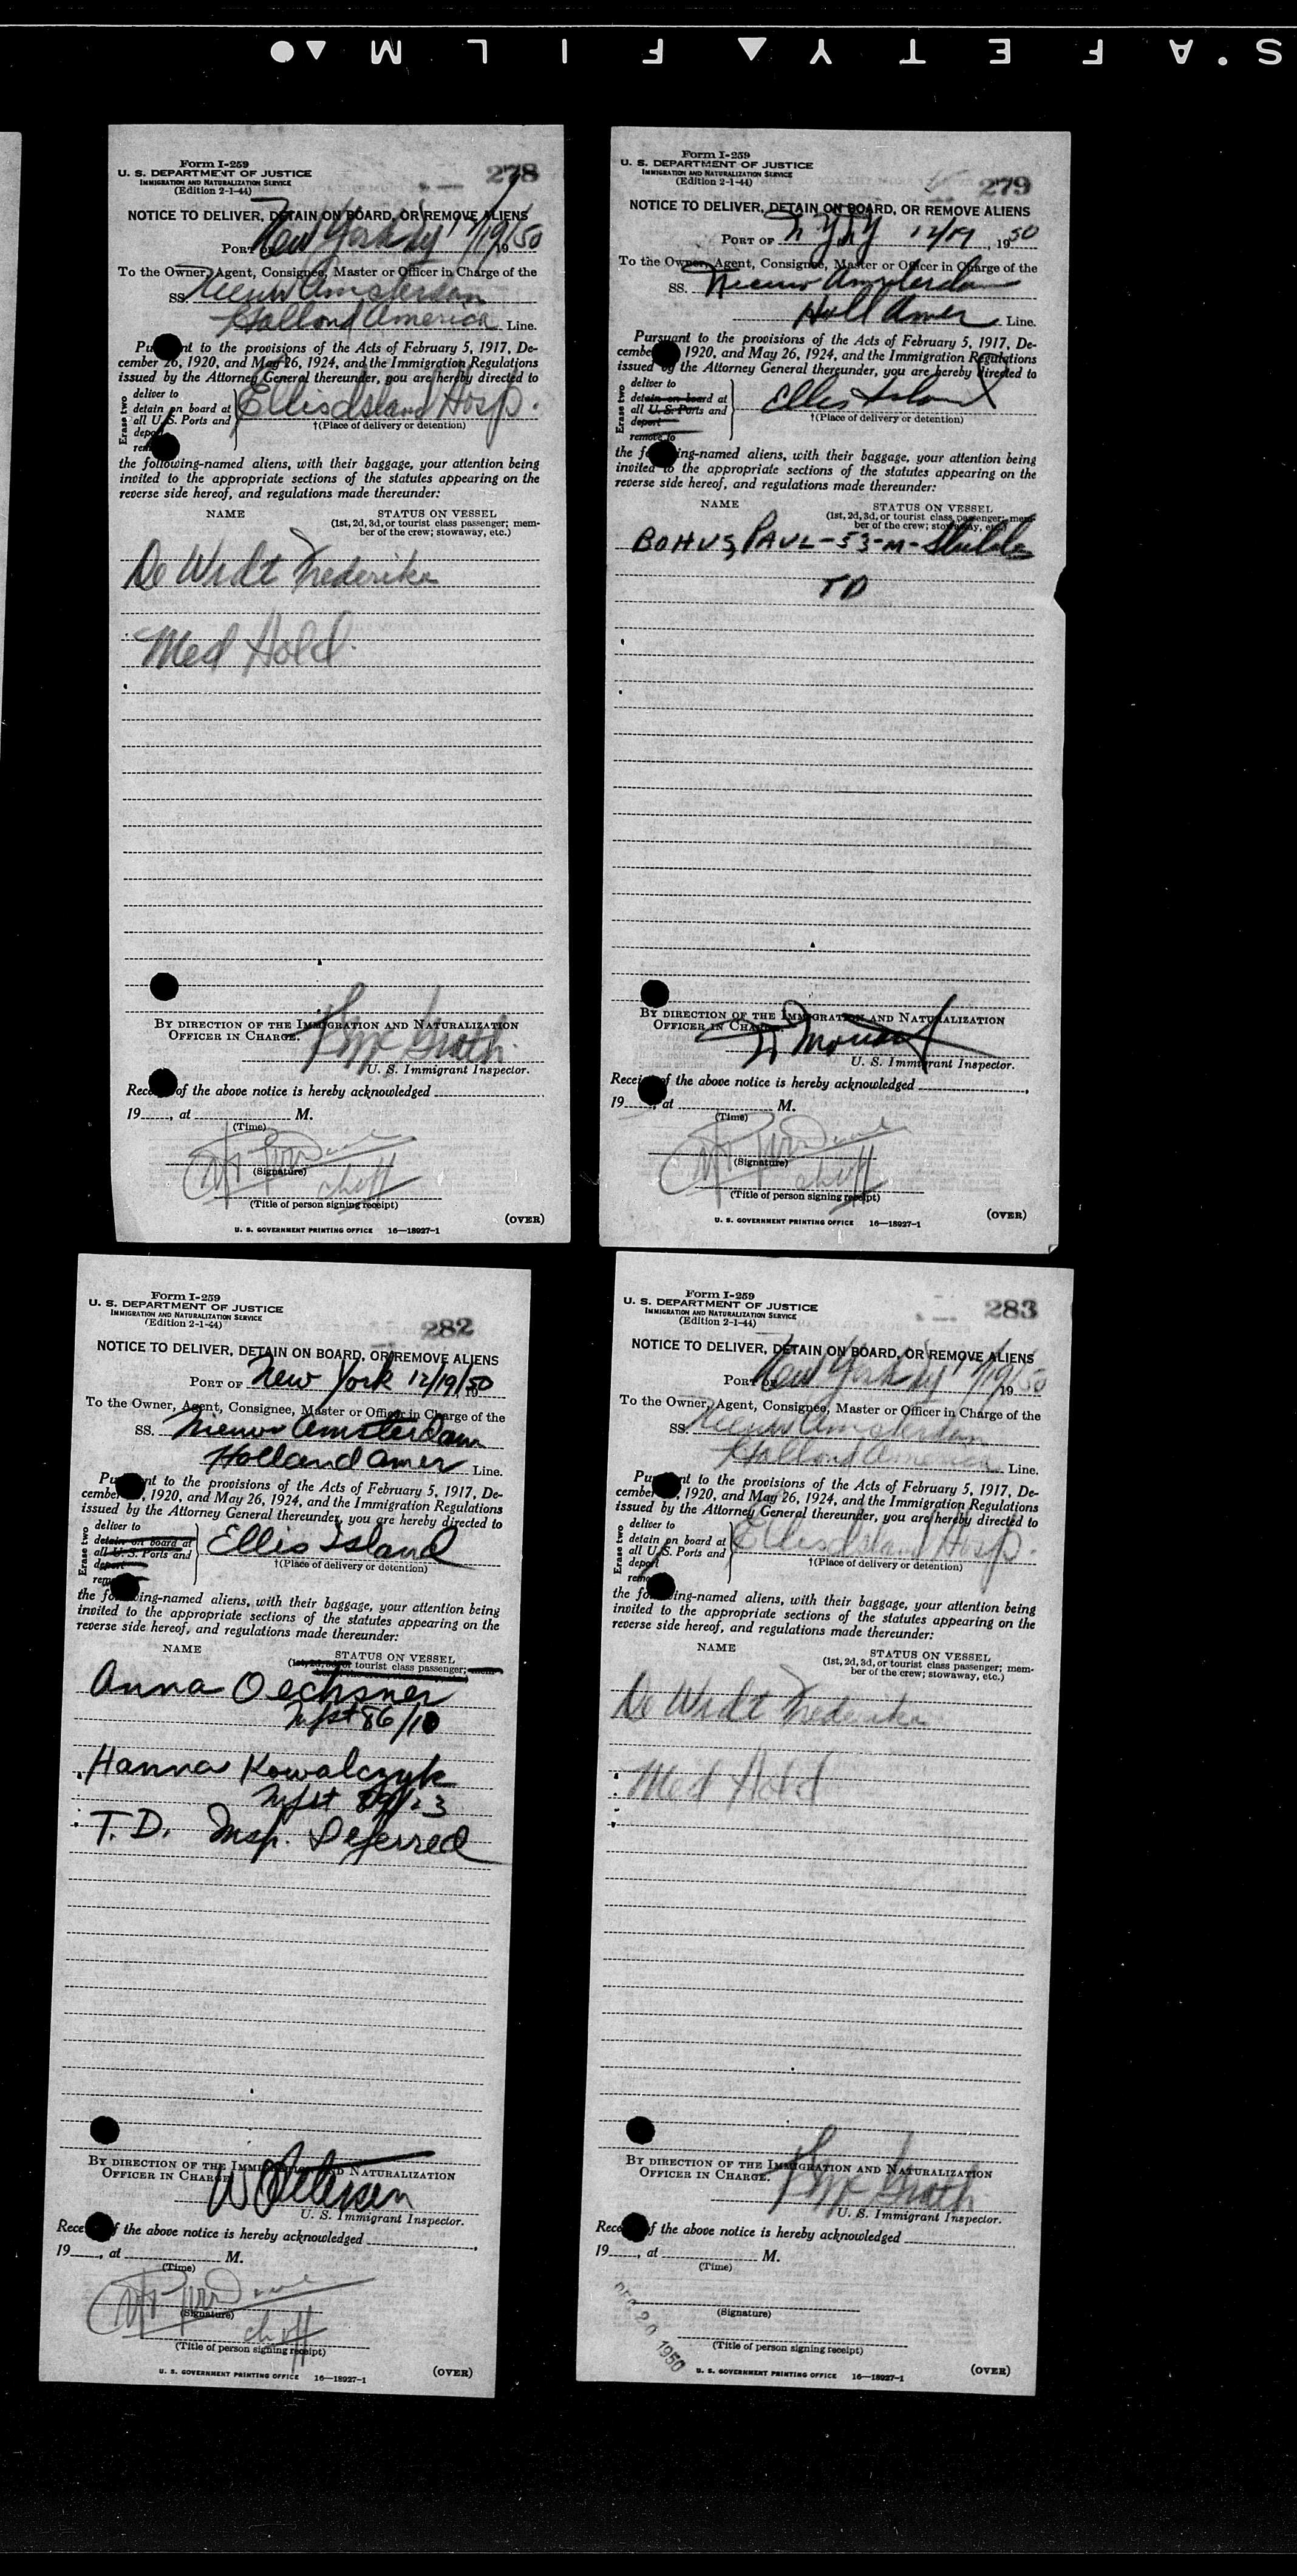 S.AFETY FILM
Form I-259
U. S. DEPARTMENT OF JUSTICE
IMMIGRATION AND NATURALIZATION SERVICE
(Edition 2-1-44)
278
NOTICE TO DELIVER, DETAIN ON BOARD, OR REMOVE ALIENS
PORT OF New York NY 12/19/50
To the Owner, Agent, Consignee, Master or Officer in Charge of the
SS. Nieuw Amsterdam
Holland America Line.
Pursuant to the provisions of the Acts of February 5, 1917, De-
cember 26, 1920, and May 26, 1924, and the Immigration Regulations
issued by the Attorney General thereunder, you are hereby directed to
Erase two
deliver to
detain on board at
all U. S. Ports and
deport
Ellis Island Hosp.
†(Place of delivery or detention)
the following-named aliens, with their baggage, your attention being
invited to the appropriate sections of the statutes appearing on the
reverse side hereof, and regulations made thereunder:
NAME STATUS ON VESSEL
(1st, 2d, 3d, or tourist class passenger; mem-
ber of the crew; stowaway, etc.)
De Wildt Frederika
Med Hold
BY DIRECTION OF THE IMMIGRATION AND NATURALIZATION
OFFICER IN CHARGE.
U. S. Immigrant Inspector.
Receipt of the above notice is hereby acknowledged
19, at M.
(Time)
(Signature)
(Title of person signing receipt)
(OVER)
U. S. GOVERNMENT PRINTING OFFICE 16—18927-1
Form I-259
U. S. DEPARTMENT OF JUSTICE
IMMIGRATION AND NATURALIZATION SERVICE
(Edition 2-1-44)
279
NOTICE TO DELIVER, DETAIN ON BOARD, OR REMOVE ALIENS
PORT OF N Y N Y 12/19, 1950
To the Owner, Agent, Consignee, Master or Officer in Charge of the
SS. Nieuw Amsterdam
Holl Amer Line.
Pursuant to the provisions of the Acts of February 5, 1917, De-
cember 1920, and May 26, 1924, and the Immigration Regulations
issued by the Attorney General thereunder, you are hereby directed to
Erase two
deliver to
detain on board at
all U. S. Ports and
deport
remove to
Ellis Island
†(Place of delivery or detention)
the following-named aliens, with their baggage, your attention being
invited to the appropriate sections of the statutes appearing on the
reverse side hereof, and regulations made thereunder:
NAME STATUS ON VESSEL
(1st, 2d, 3d, or tourist class passenger; mem-
ber of the crew; stowaway, etc.)
BOHUS, PAUL-53-M-
TD
BY DIRECTION OF THE IMMIGRATION AND NATURALIZATION
OFFICER IN CHARGE.
U. S. Immigrant Inspector.
Receipt of the above notice is hereby acknowledged
19, at M.
(Time)
(Signature)
(Title of person signing receipt)
(OVER)
U. S. GOVERNMENT PRINTING OFFICE 16—18927-1
Form I-259
U. S. DEPARTMENT OF JUSTICE
IMMIGRATION AND NATURALIZATION SERVICE
(Edition 2-1-44)
282
NOTICE TO DELIVER, DETAIN ON BOARD, OR REMOVE ALIENS
PORT OF New York 12/19/50
To the Owner, Agent, Consignee, Master or Officer in Charge of the
SS. Nieuw Amsterdam
Holland Amer Line.
Pursuant to the provisions of the Acts of February 5, 1917, De-
cember, 1920, and May 26, 1924, and the Immigration Regulations
issued by the Attorney General thereunder, you are hereby directed to
Erase two
deliver to
detain on board at
all U. S. Ports and
deport
Ellis Island
†(Place of delivery or detention)
the following-named aliens, with their baggage, your attention being
invited to the appropriate sections of the statutes appearing on the
reverse side hereof, and regulations made thereunder:
NAME STATUS ON VESSEL
(1st, 2d, 3d, or tourist class passenger; mem-
Anna Oechsner
Mfst 86/10
Hanna Kowalczyk
Mfst 89/23
T. D. Insp. Deferred
BY DIRECTION OF THE IMMIGRATION AND NATURALIZATION
OFFICER IN CHARGE
W Petersen
U. S. Immigrant Inspector.
Receipt of the above notice is hereby acknowledged
19, at M.
(Time)
(Signature)
(Title of person signing receipt)
(OVER)
U. S. GOVERNMENT PRINTING OFFICE 16—18927-1
Form I-259
U. S. DEPARTMENT OF JUSTICE
IMMIGRATION AND NATURALIZATION SERVICE
(Edition 2-1-44)
283
NOTICE TO DELIVER, DETAIN ON BOARD, OR REMOVE ALIENS
PORT OF New York NY 12/19/50
To the Owner, Agent, Consignee, Master or Officer in Charge of the
SS. Nieuw Amsterdam
Holland America Line.
Pursuant to the provisions of the Acts of February 5, 1917, De-
cember, 1920, and May 26, 1924, and the Immigration Regulations
issued by the Attorney General thereunder, you are hereby directed to
Erase two
deliver to
detain on board at
all U. S. Ports and
deport
Ellis Island Hosp.
†(Place of delivery or detention)
the following-named aliens, with their baggage, your attention being
invited to the appropriate sections of the statutes appearing on the
reverse side hereof, and regulations made thereunder:
NAME STATUS ON VESSEL
(1st, 2d, 3d, or tourist class passenger; mem-
ber of the crew; stowaway, etc.)
De Wildt Frederika
Med Hold
BY DIRECTION OF THE IMMIGRATION AND NATURALIZATION
OFFICER IN CHARGE.
U. S. Immigrant Inspector.
Receipt of the above notice is hereby acknowledged
19, at M.
(Time)
(Signature)
DEC 20 1950
(Title of person signing receipt)
(OVER)
U. S. GOVERNMENT PRINTING OFFICE 16—18927-1